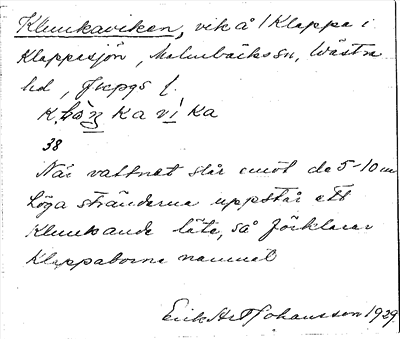 Klunkaviken, vik å 1 Klappa i
Klappasjön, Malmbäcks sn, Västra
hd, Jkpgs l.
ka vi ka
38
När vattnet slår emot de 5-10 m
höga stränderna uppstår ett
klunkande läte, så förklarar
Klappaborna namnet
Erik Art Johansson 1929